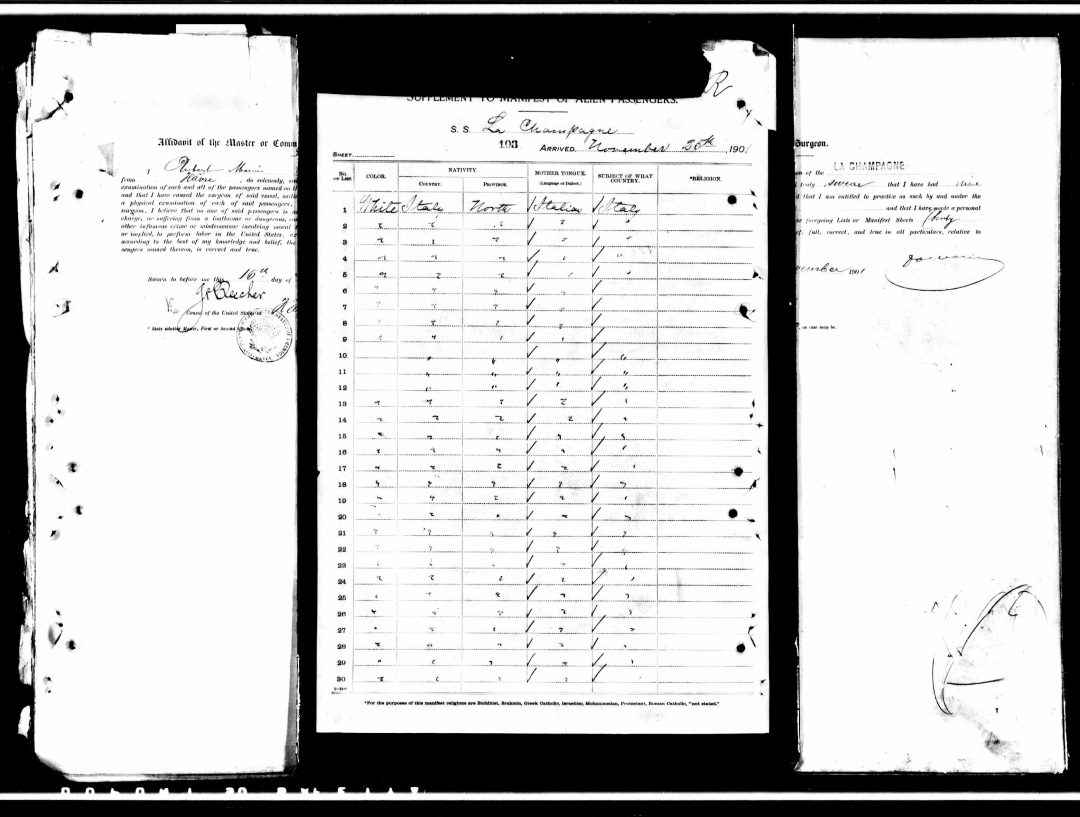 Affidavit of the Master or Comm
I, Robert
from Havre, do solemnly,
examination of each and all of the passengers named on th
and that I have caused the surgeon of said vessel,
a physical examination of each of said passengers,
surgeon, I believe that no one of said passengers is a
charge, or suffering from a loathsome or dangerous,
other infamous crime or misdemeanor involving moral
or implied, to perform labor in the United States,
according to the best of my knowledge and belief, the
sengers named therein, is correct and true.
Sworn to before me this 16th day of
Beecher
Consul of the United States at
* State whether Master, First or Second
SUPPLEMENT TO MANIFEST OF ALIEN PASSENGERS.
R
S. S. La Champagne
193 ARRIVED, November 25th, 1901
SHEET
No. on List COLOR. NATIVITY. COUNTRY. PROVINCE. MOTHER TONGUE. (Language or Dialect.) SUBJECT OF WHAT COUNTRY. *RELIGION.
1 White Italy North Italian Italy
2 " " " " "
3 " " " " "
4 " " " " "
5 " " " " "
6 " " " "
7 " " "
8 " " " "
9 " " " "
10 " " " "
11 " " " "
12 " " " "
13 " " " " "
14 " " " " "
15 " " " " "
16 " " " " "
17 " " " " "
18 " " " " "
19 " " " " "
20 " " " " "
21 " " " " "
22 " " " " "
23 " " " " "
24 " " " " "
25 " " " " "
26 " " " " "
27 " " " " "
28 " " " " "
29 " " " " "
30 " " " "
*For the purposes of this manifest religions are Buddhist, Brahmin, Greek Catholic, Israelite, Mohammedan, Protestant, Roman Catholic, "not stated."
Surgeon.
on of the LA CHAMPAGNE
truly swear that I have had nine
d that I am entitled to practice as such by and under the
and that I have made a personal
he foregoing Lists or Manifest Sheets
of, full, correct, and true in all particulars, relative to
vember 1901
as case may be.